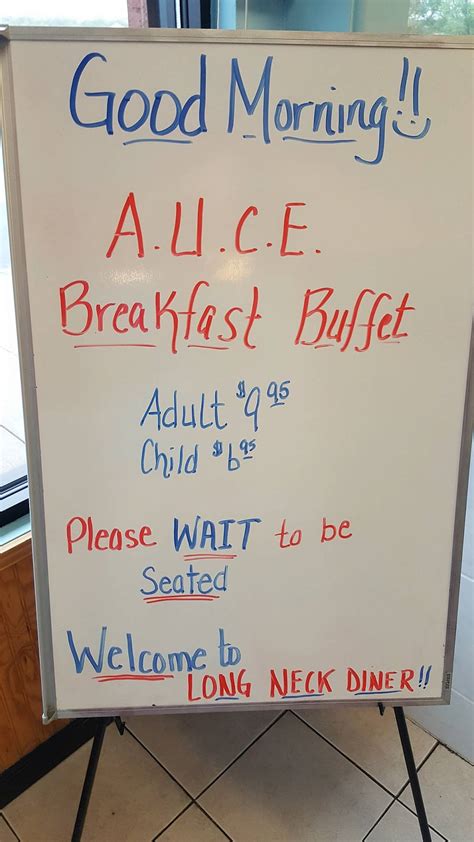 Good Morning!!
A.U.C.E.
Breakfast Buffet
Adult $9.95
Child $6.95
Please WAIT to be
Seated
Welcome to
LONG NECK DINER!!